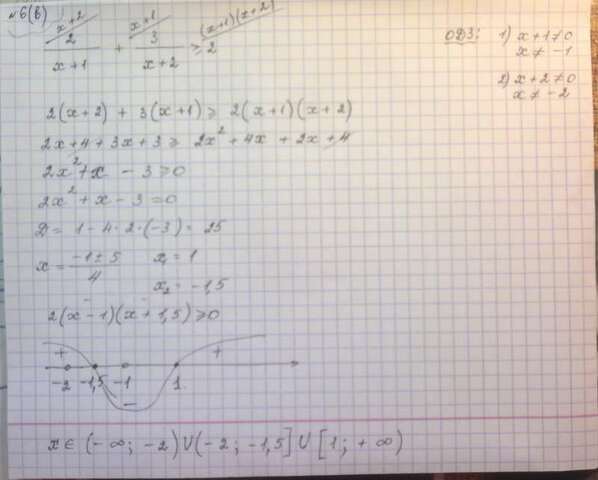 №6(в)
x+2 x+1 (x+1)(x+2)
2/(x+1) + 3/(x+2) ≥ 2
ОДЗ: 1) x+1≠0
x ≠ -1
2) x+2≠0
x ≠ -2
2(x+2) + 3(x+1) ≥ 2(x+1)(x+2)
2x+4+3x+3 ≥ 2x²+4x+2x+4
2x²+x - 3 ≥0
2x²+x-3=0
D= 1-4·2·(-3)= 25
x= (-1±5)/4 x₁=1
x₂= -1,5
2(x-1)(x+1,5) ≥0
+ - +
-2 -1,5 -1 1
x ∈ (-∞; -2) U (-2; -1,5] U [1; +∞)